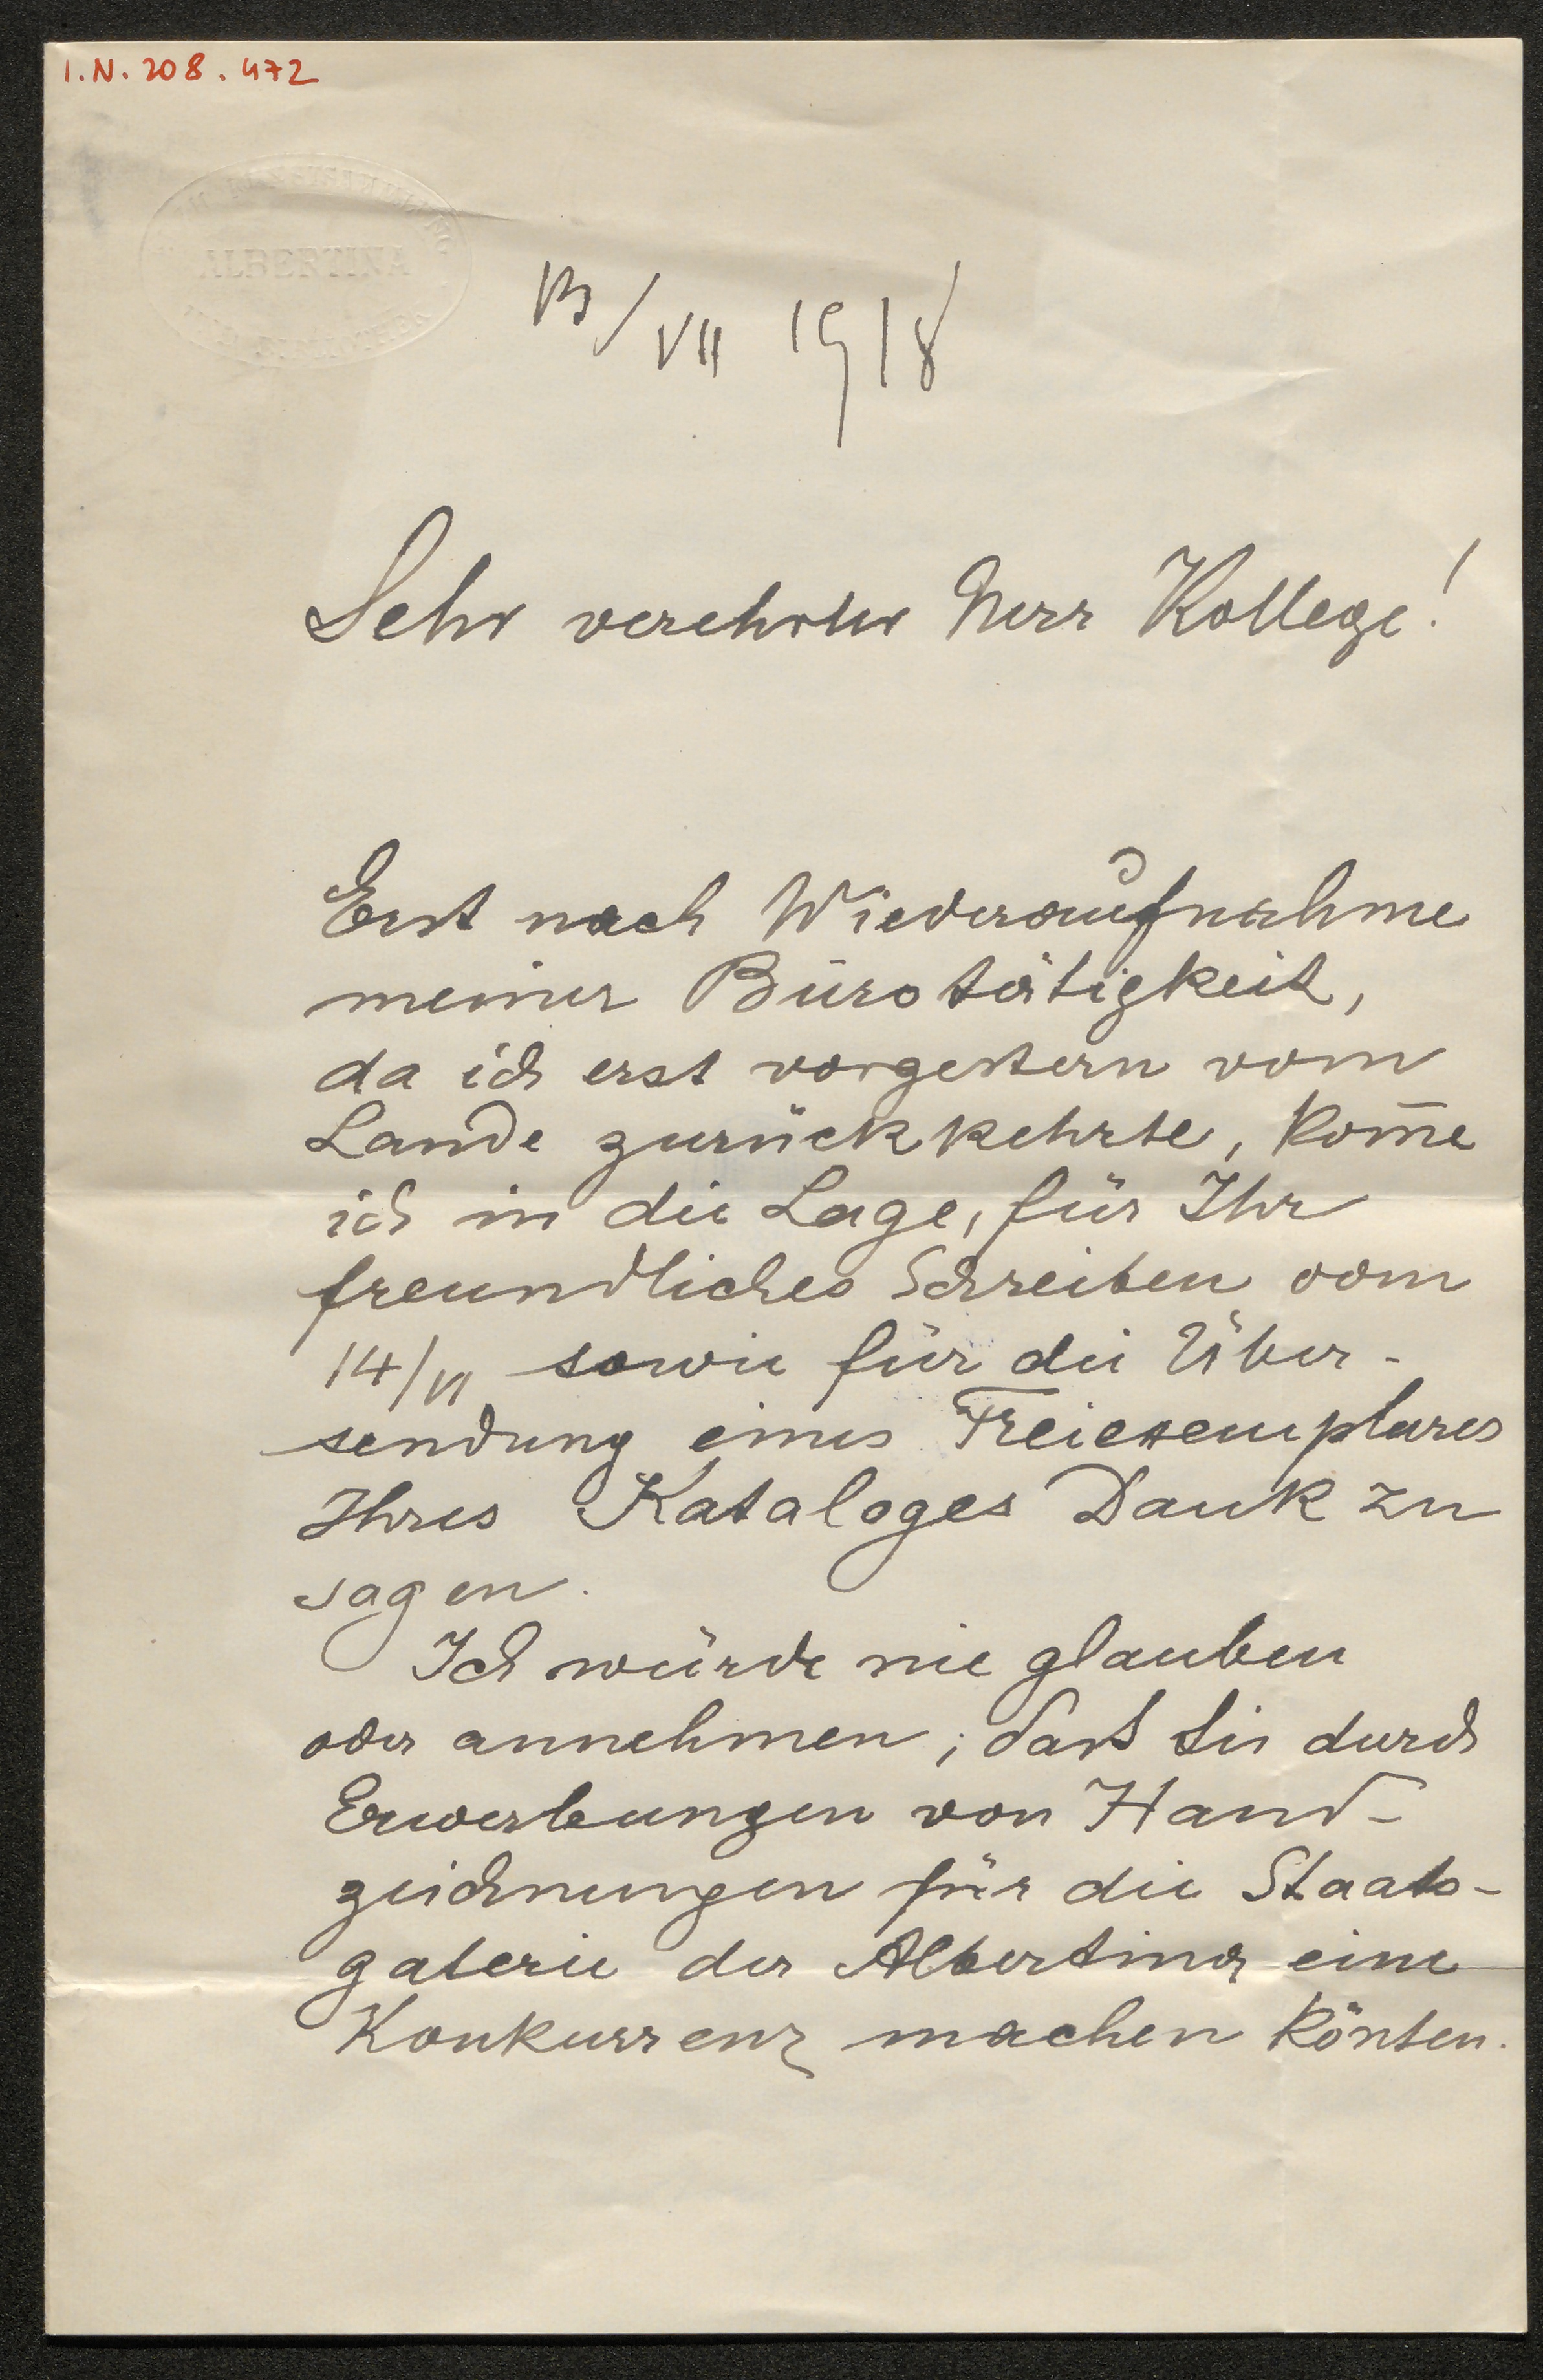 I.N. 208.472
ALBERTINA
13/VII 1918
Sehr verehrter Herr Kollege!
Erst nach Wiederaufnahme
meiner Bürotätigkeit,
da ich erst vorgestern vom
Lande zurückkehrte, kom̄e
ich in die Lage, für Ihr
freundliches Schreiben vom
14/VI sowie für die Über-
sendung eines Freiexemplares
Ihres Kataloges Dank zu
sagen.
Ich würde nie glauben
oder annehmen, dass Sie durch
Erwerbungen von Hand-
zeichnungen für die Staats-
galerie der Albertina eine
Konkurrenz machen kön̄ten.